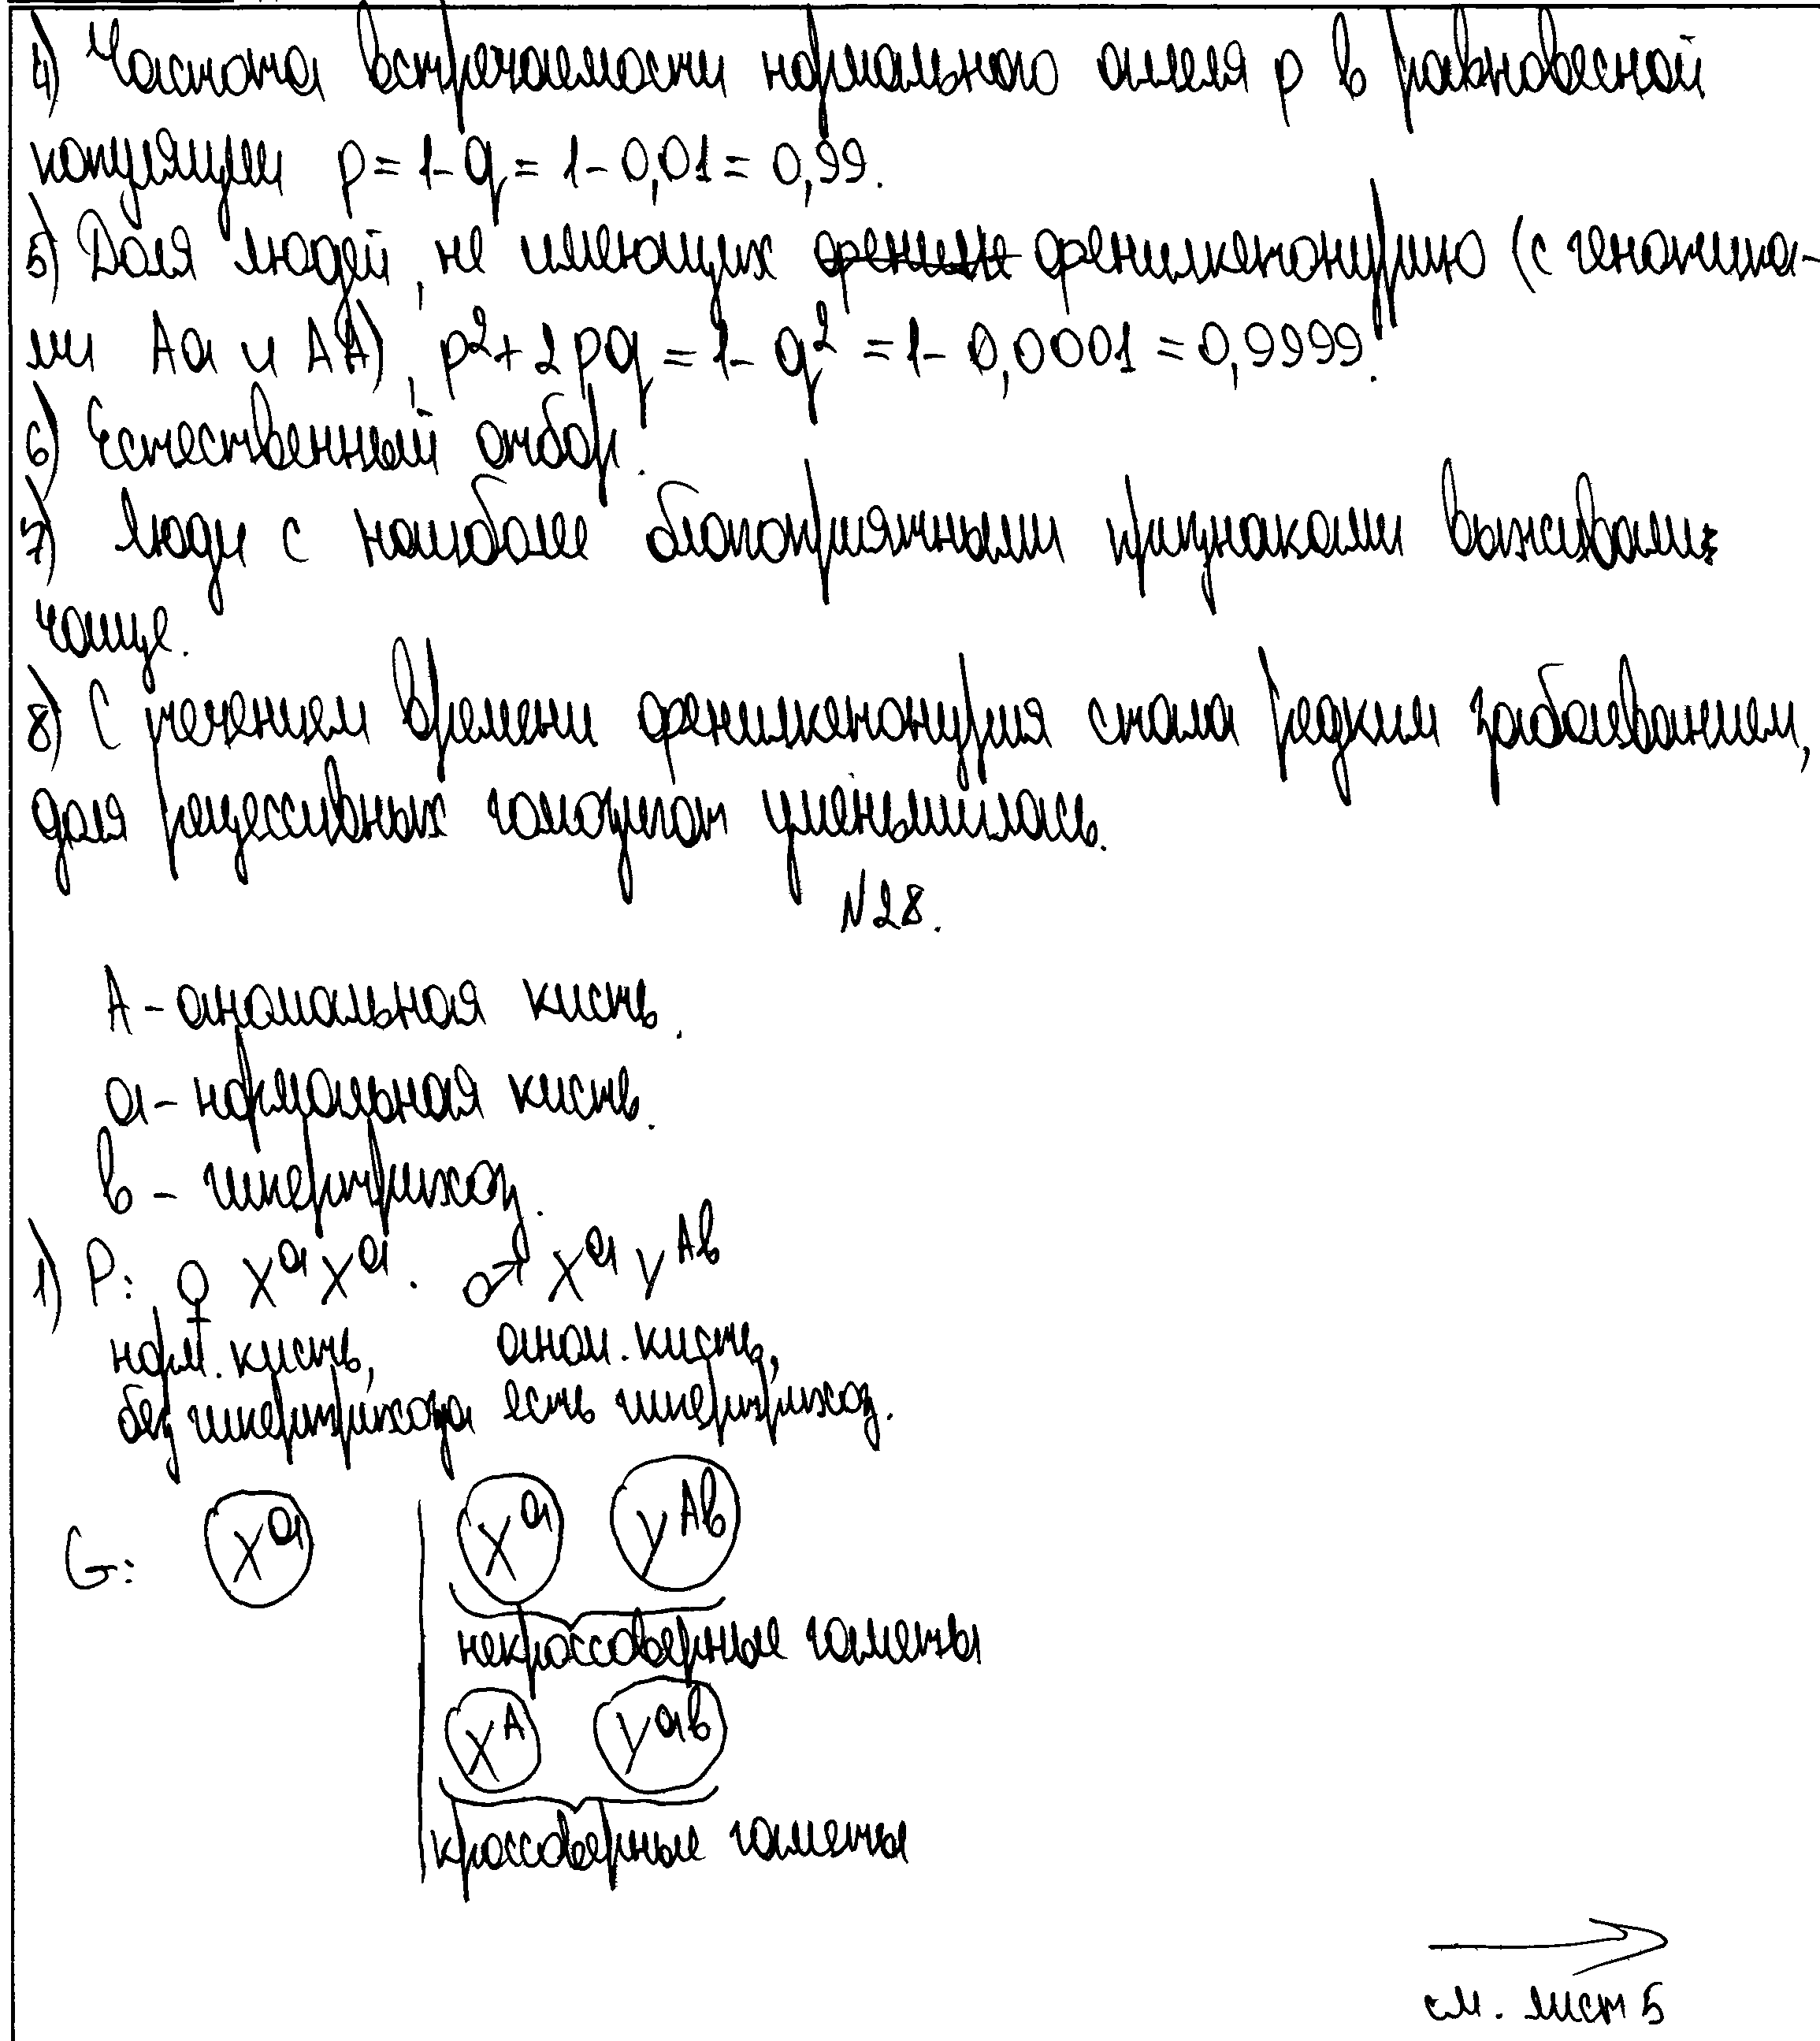 4) Частота встречаемости нормального аллеля p в равновесной
популяции p = 1 - q = 1 - 0,01 = 0,99.
5) Доля людей, не имеющих фениле фенилкетонурию (с генотипа-
ми Аа и АА), p² + 2pq = 1 - q² = 1 - 0,0001 = 0,9999.
6) Естественный отбор.
7) Люди с наиболее благоприятными признаками выживали
чаще.
8) С течением времени фенилкетонурия стала редким заболеванием,
доля рецессивных гомозигот уменьшилась.
№28.
А - аномальная кисть.
а - нормальная кисть.
в - гипертрихоз.
1) P: ♀ XᵃXᵃ. ♂ XᵃYᴬᵇ
норм. кисть, аном. кисть,
без гипертрихоза есть гипертрихоз.
G: Xᵃ Xᵃ Yᴬᵇ
некроссоверные гаметы
Xᴬ Yᵃᵇ
кроссоверные гаметы
см. лист 5